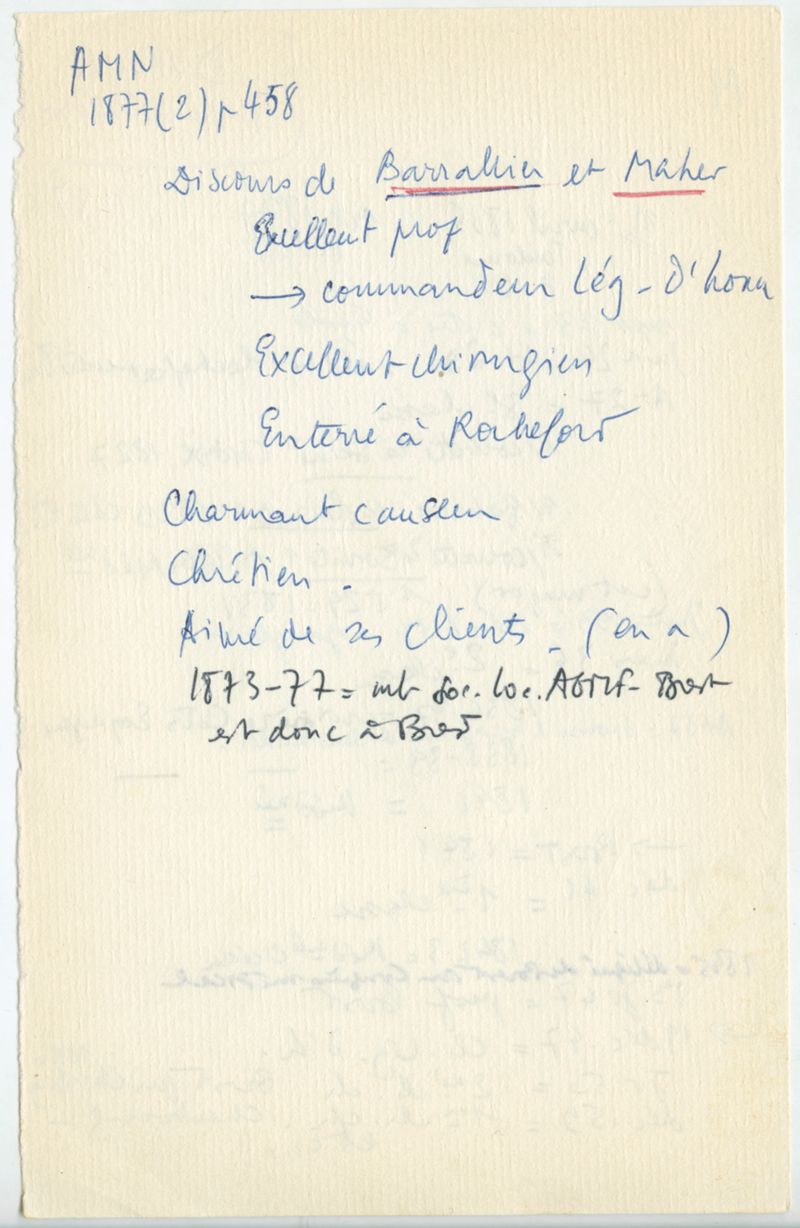 AMN
1877(2) p 458
Discours de Barrallier et Maher
Excellent prof
→ commandeur Lég - d'honn
Excellent chirurgien
Enterré à Rochefort
Charmant causeur
Chrétien -
Aimé de ses clients - (en a)
1873-77 = mb Soc. loc. AGMF - Brest
est donc à Brest